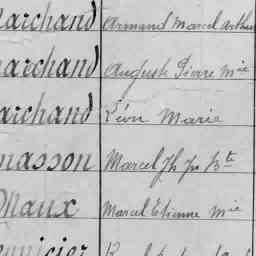 Marchand Armand Marcel Arthur
Marchand Auguste Pierre Mie
Marchand Léon Marie
masson Marcel Jh
Maux Marcel Etienne Mie